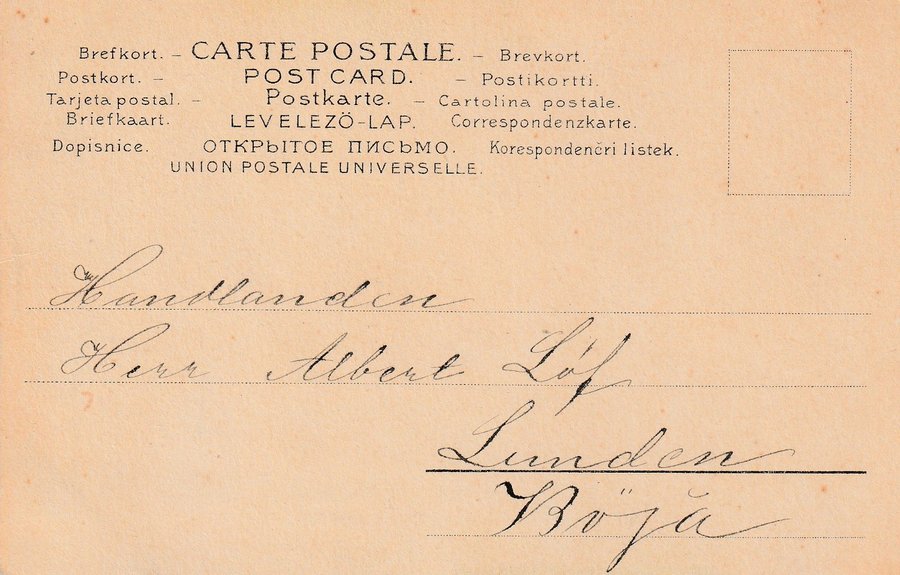 Brefkort. – CARTE POSTALE. – Brevkort.
Postkort. – POST CARD. – Postikortti.
Tarjeta postal. – Postkarte. – Cartolina postale.
Briefkaart. LEVELEZŐ-LAP. Correspondenzkarte.
Dopisnice. ОТКРЫТОЕ ПИСЬМО. Korespondenčri listek.
UNION POSTALE UNIVERSELLE.
Handlanden
Herr Albert Löf
Lunden
Böja